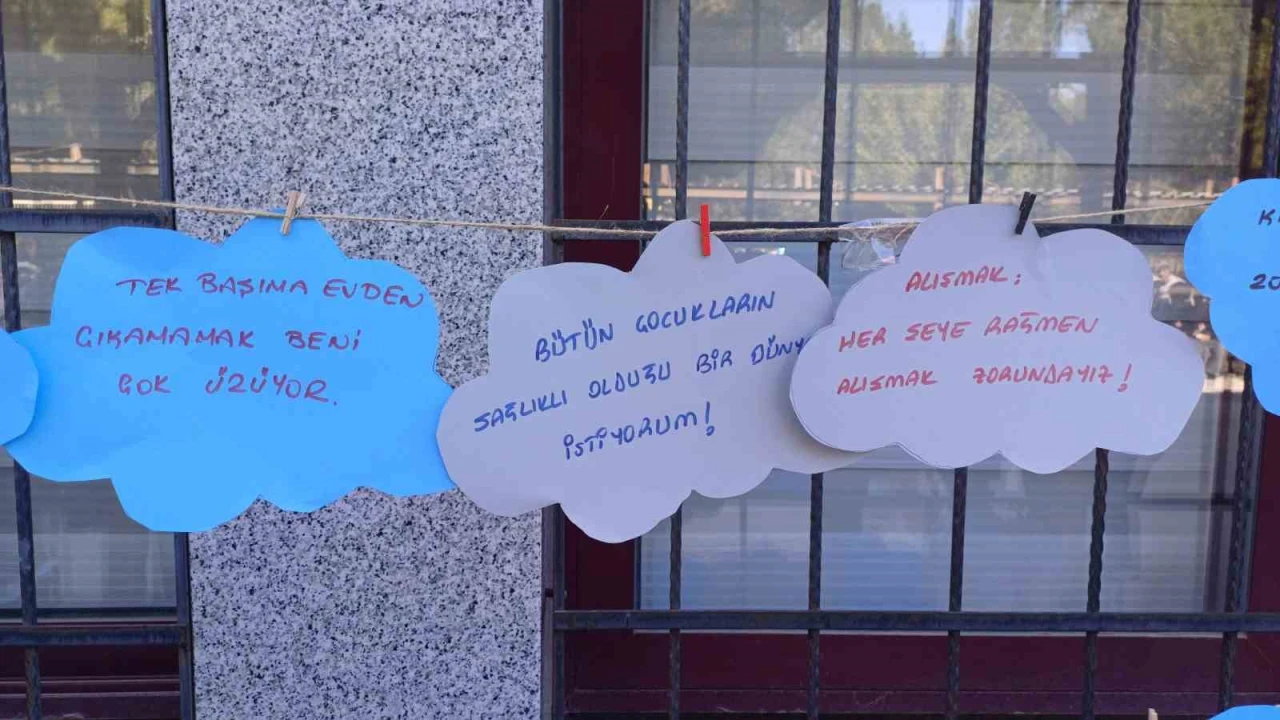 TEK BAŞIMA EVDEN
ÇIKAMAMAK BENİ
ÇOK ÜZÜYOR.
BÜTÜN ÇOCUKLARIN
SAĞLIKLI OLDUĞU BİR DÜNY
İSTİYORUM!
ALIŞMAK;
HER ŞEYE RAĞMEN
ALIŞMAK ZORUNDAYIZ!
K
20